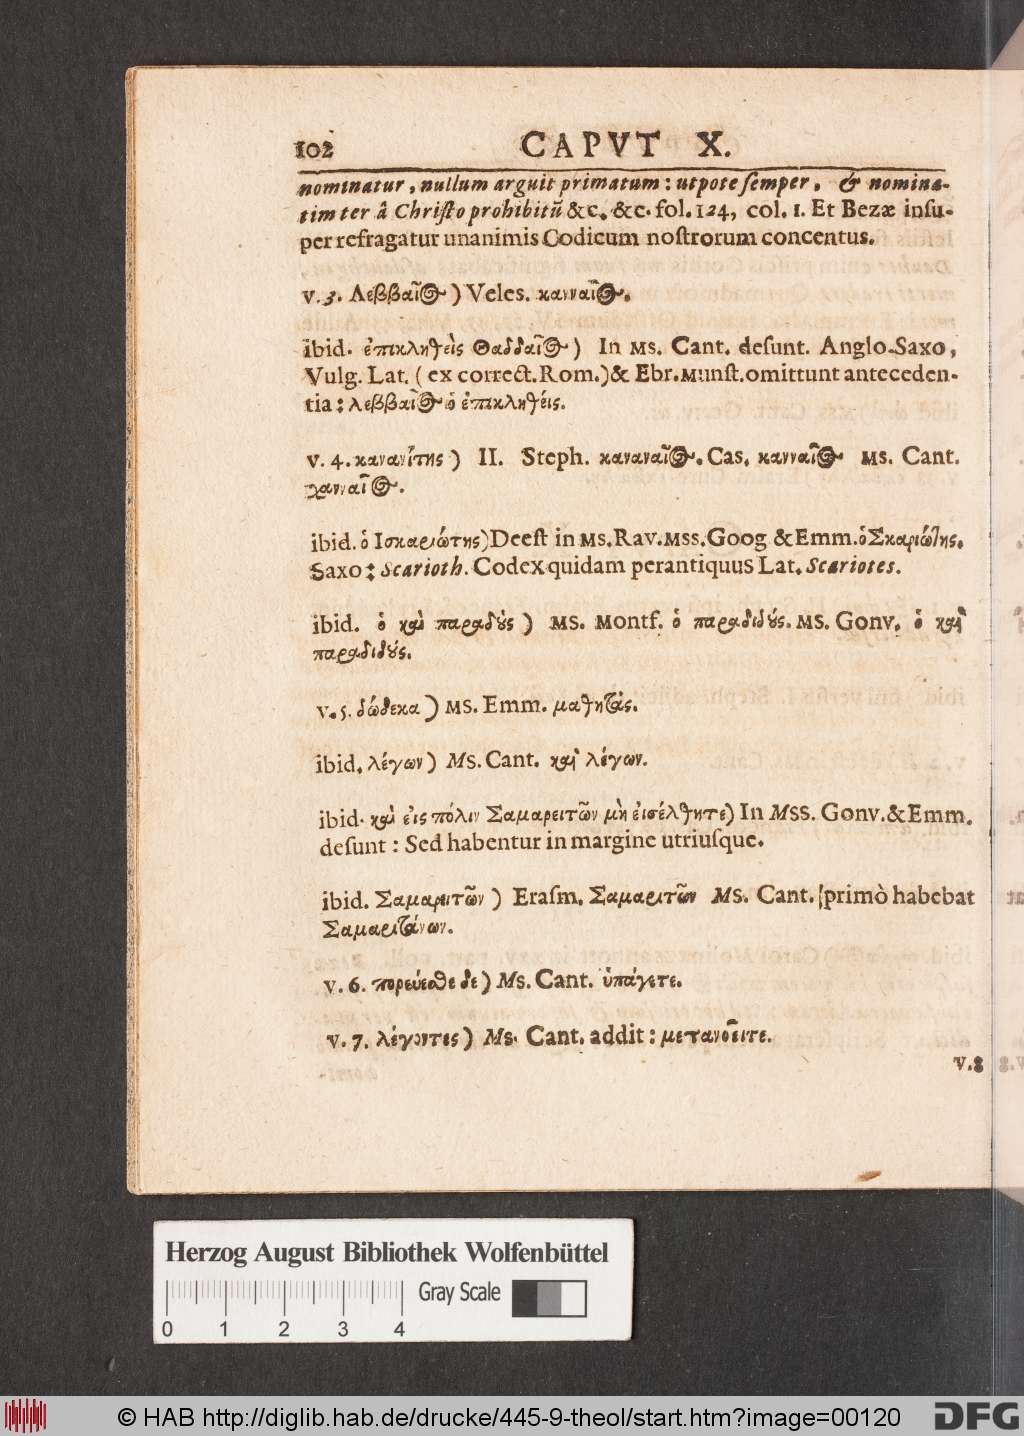 102 CAPVT X.
nominatur, nullum arguit primatum: utpote semper, & nomina-
tim ter â Christo prohibitũ &c. &c. fol. 124, col. 1. Et Bezæ insu-
per refragatur unanimis Codicum nostrorum concentus.
v. 3. Λεββαῖος) Veles. κανναῖος.
ibid. ἐπικληθεὶς Θαδδαῖος) In Ms. Cant. desunt. Anglo-Saxo,
Vulg. Lat. (ex correct. Rom.) & Ebr. Munst. omittunt anteceden-
tia: λεββαῖος ὁ ἐπικληθείς.
v. 4. κανανίτης) II. Steph. καναναῖος. Cas. κανναῖος Ms. Cant.
χανναῖος.
ibid. ὁ Ισκαριώτης) Deest in Ms. Rav. Mss. Goog & Emm. ὁ Σκαριώτης.
Saxo: Scarioth. Codex quidam perantiquus Lat. Scariotes.
ibid. ὁ καὶ παραδοὺς) MS. Montf. ὁ παραδιδούς. MS. Gonv. ὁ καὶ
παραδιδούς.
v. 5. δώδεκα) MS. Emm. μαθητάς.
ibid. λέγων) Ms. Cant. καὶ λέγων.
ibid. καὶ εἰς πόλιν Σαμαρειτῶν μὴ εἰσέλθητε) In Mss. Gonv. & Emm.
desunt: Sed habentur in margine utriusque.
ibid. Σαμαρειτῶν) Erasm. Σαμαριτῶν Ms. Cant. primò habebat
Σαμαριτάνων.
v. 6. πορεύεσθε δε) Ms. Cant. ὑπάγετε.
v. 7. λέγοντες) Ms. Cant. addit: μετανοεῖτε.
v. 8
Herzog August Bibliothek Wolfenbüttel
Gray Scale
0 1 2 3 4
© HAB http://diglib.hab.de/drucke/445-9-theol/start.htm?image=00120 DFG